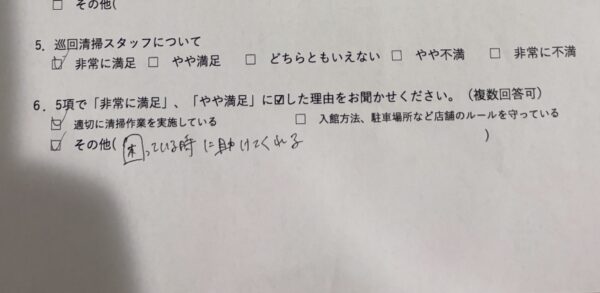 □ その他(
5. 巡回清掃スタッフについて
☑ 非常に満足 □ やや満足 □ どちらともいえない □ やや不満 □ 非常に不満
6. 5項で「非常に満足」、「やや満足」に☑した理由をお聞かせください。(複数回答可)
☑ 適切に清掃作業を実施している □ 入館方法、駐車場所など店舗のルールを守っている
☑ その他( 困っている時に助けてくれる )